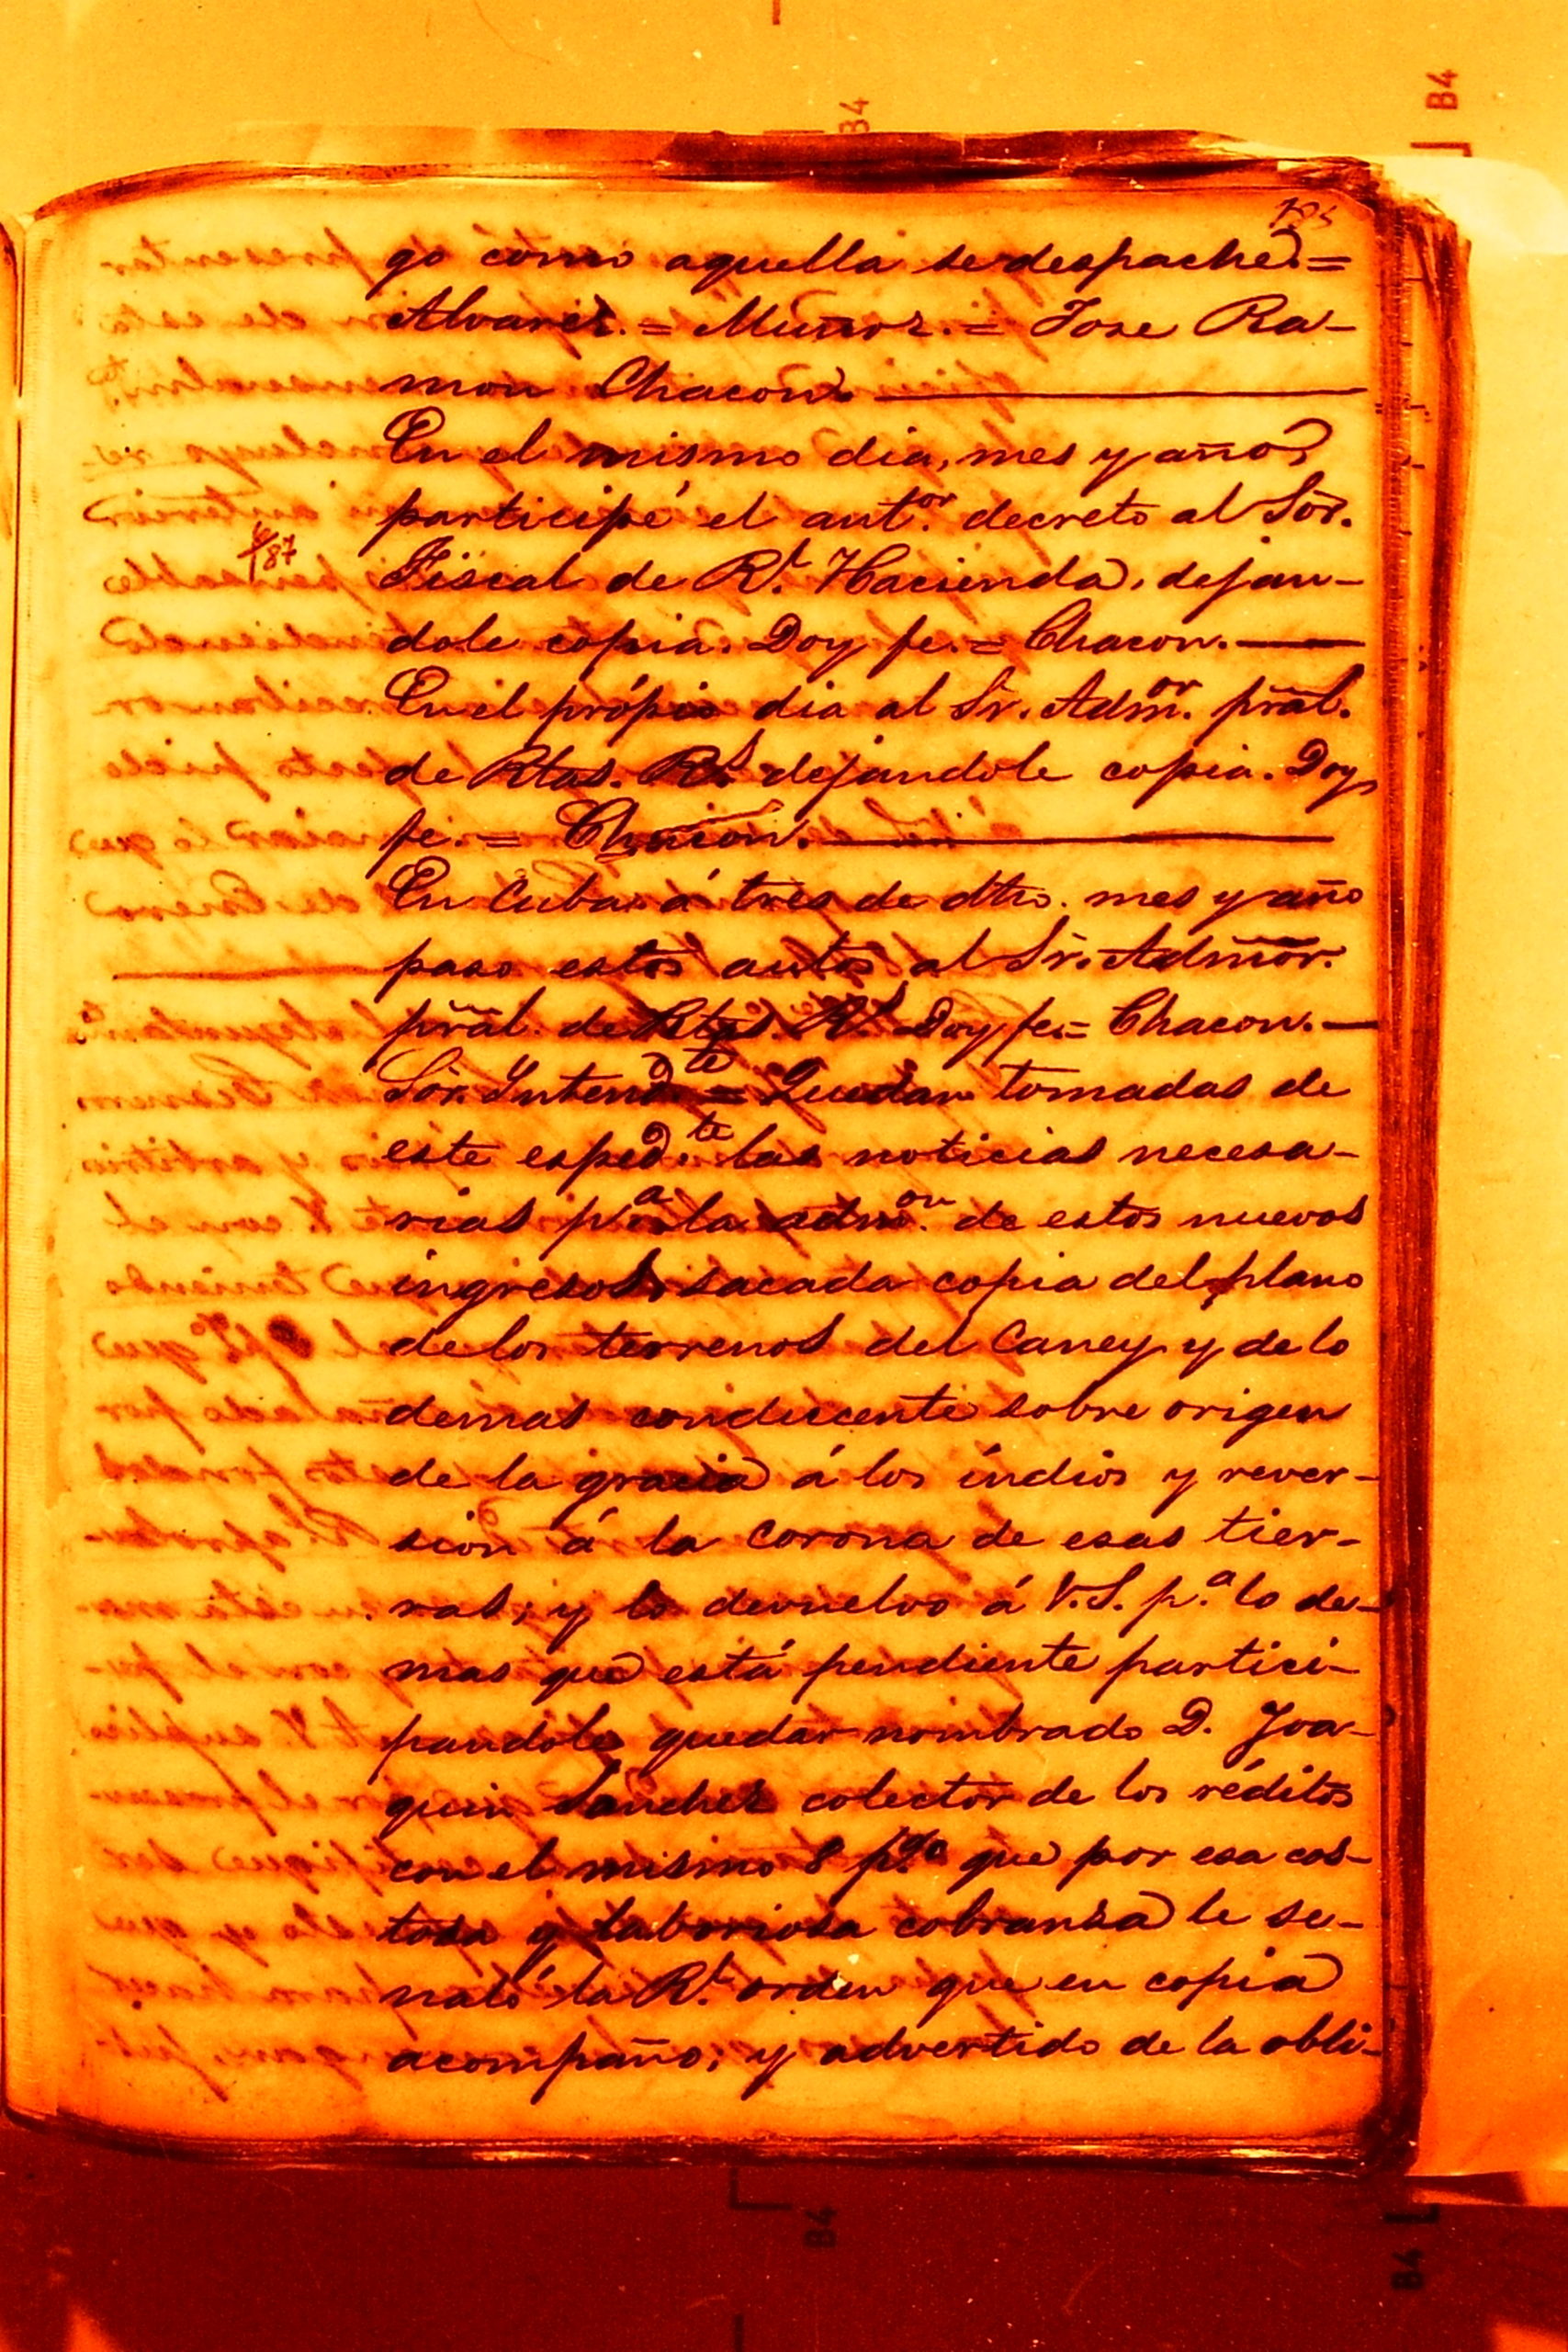 go como aquella se despache.=
Alvarez.= Muñoz.= Jose Ra-
mon Chacon.
En el mismo dia, mes y año
participé el ant.or decreto al Sôr.
Fiscal de R.l Hacienda, dejan-
dole copia. Doy fe.= Chacon.
En el própio dia al Sr. Adm.or prãl.
de Rtas. R.s dejandole copia. Doy
fe.= Chacon.
En Cuba á tres de dho. mes y año
paso estos autos al Sr. Admõr.
prãl. de Rtas. R.s Doy fe.= Chacon.
Sôr. Intend.te = Quedan tomadas de
este esped.te las noticias necesa-
rias p.a la adm.on de estos nuevos
ingresos, sacada copia del plano
de los terrenos del Caney y de lo
demas conducente sobre origen
de la gracia á los índios y rever-
sion á la Corona de esas tier-
ras; y lo devuelvo á V.S. p.a lo de-
mas que está pendiente partici-
pandole quedar nombrado D. Joa-
quin Sanchez colector de los réditos
con el mismo 8 p.do que por esa cos-
tosa y laboriosa cobranza le se-
naló la R.l orden que en copia
acompaño; y advertido de la obli-
87
B4
B4
B4
B4